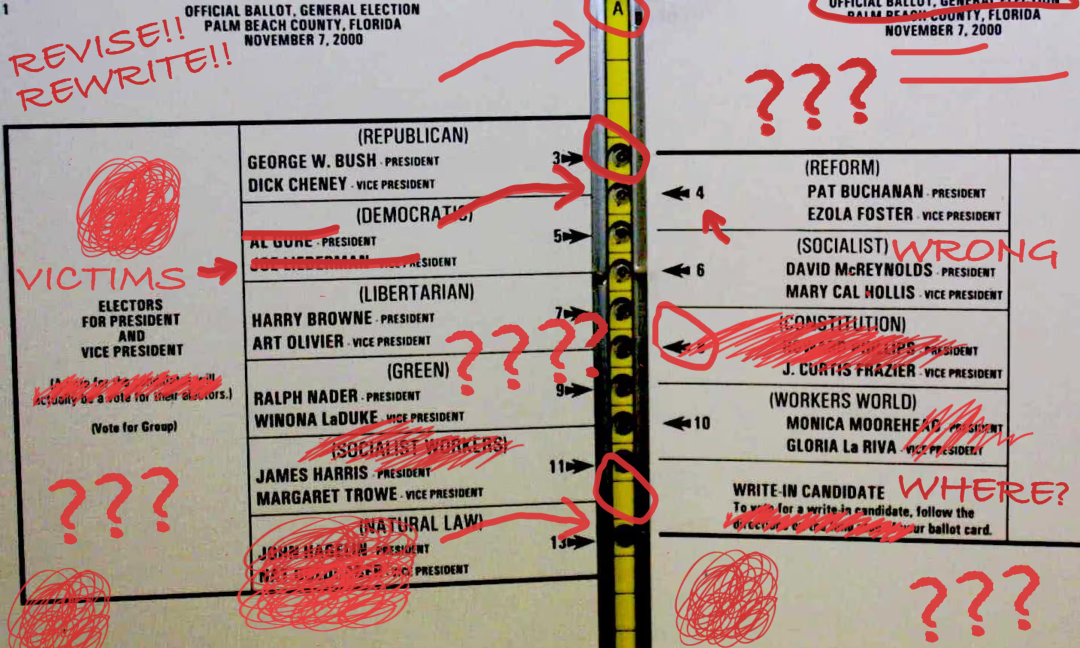 1
OFFICIAL BALLOT, GENERAL ELECTION
PALM BEACH COUNTY, FLORIDA
NOVEMBER 7, 2000
REVISE!!
REWRITE!!
A
OFFICIAL BALLOT, GENERAL ELECTION
PALM BEACH COUNTY, FLORIDA
NOVEMBER 7, 2000
???
VICTIMS
ELECTORS
FOR PRESIDENT
AND
VICE PRESIDENT
actually be a vote for their electors.)
(Vote for Group)
???
(REPUBLICAN)
GEORGE W. BUSH - PRESIDENT
DICK CHENEY - VICE PRESIDENT
3
(DEMOCRATIC)
AL GORE - PRESIDENT
JOE LIEBERMAN - VICE PRESIDENT
5
(LIBERTARIAN)
HARRY BROWNE - PRESIDENT
ART OLIVIER - VICE PRESIDENT
7
????
(GREEN)
RALPH NADER - PRESIDENT
WINONA LaDUKE - VICE PRESIDENT
9
(SOCIALIST WORKERS)
JAMES HARRIS - PRESIDENT
MARGARET TROWE - VICE PRESIDENT
11
(NATURAL LAW)
JOHN HAGELIN - PRESIDENT
VICE PRESIDENT
13
(REFORM)
4
PAT BUCHANAN - PRESIDENT
EZOLA FOSTER - VICE PRESIDENT
(SOCIALIST)
WRONG
6
DAVID McREYNOLDS - PRESIDENT
MARY CAL HOLLIS - VICE PRESIDENT
(CONSTITUTION)
PHILLIPS - PRESIDENT
J. CURTIS FRAZIER - VICE PRESIDENT
(WORKERS WORLD)
10
MONICA MOOREHEAD - PRESIDENT
GLORIA La RIVA - VICE PRESIDENT
WRITE-IN CANDIDATE
WHERE?
To vote for a write-in candidate, follow the
directions on the your ballot card.
???